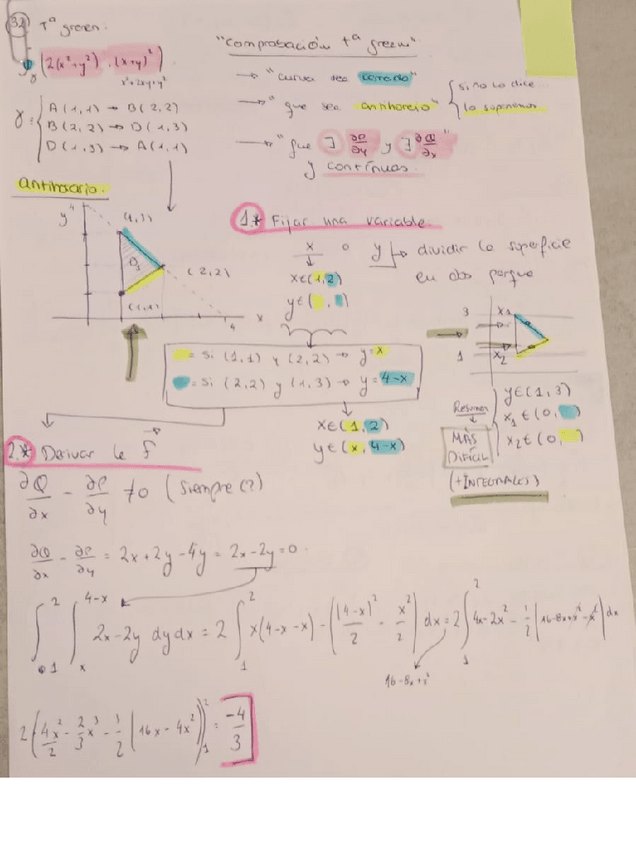 32
Tª green.
∮γ (2(x²+y²), (x+y)²)
x²+2xy+y²
γ = { A(1,1) → B(2,2)
B(2,2) → D(1,3)
D(1,3) → A(1,1)
"Comprobación tª green"
→ "curva sea cerrada"
→ "que sea antihorario" { si no lo dice
lo suponemos
→ "que ∃ ∂P/∂y y ∃ ∂Q/∂x"
y continuas.
antihorario.
y
4
(1,3)
(2,2)
(1,1)
4
x
1* Fijar una variable
x o y → dividir la superficie
en dos porque
x∈(1,2)
y∈( , )
= si (1,1) y (2,2) → y=x
= si (2,2) y (1,3) → y=4-x
x∈(1,2)
y∈(x,4-x)
3
x1
1
x2
Resumen
MÁS
DIFÍCIL
(+INTEGRALES)
y∈(1,3)
x₁∈(0, )
x₂∈(0, )
2* Derivar la f
∂Q/∂x - ∂P/∂y ≠0 (siempre(?)
∂Q/∂x - ∂P/∂y = 2x+2y-4y = 2x-2y=0.
∫₁² ∫ₓ^(4-x) 2x-2y dydx = 2 ∫₁² x(4-x-x) - ((4-x)²/2 - x²/2) dx = 2 ∫₁² 4x-2x² - 1/2 (16-8x+x²-x²) dx
16-8x+x²
2 (4x²/2 - 2/3 x³ - 1/2 (16x-4x²))₁² = -4/3